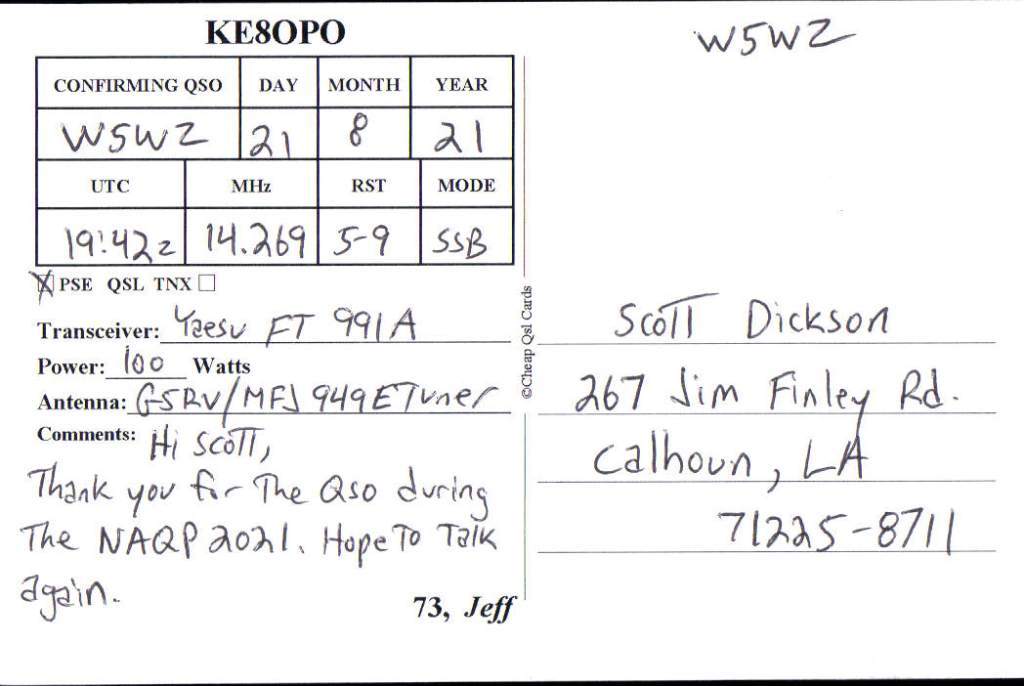 KE8OPO
CONFIRMING QSO DAY MONTH YEAR
W5WZ 21 8 21
UTC MHz RST MODE
19:42z 14.269 5-9 SSB
X PSE QSL TNX ☐
Transceiver: Yaesu FT 991A
Power: 100 Watts
Antenna: G5RV/MFJ 949E Tuner
Comments: Hi Scott,
Thank you for The QSO during
The NAQP 2021. Hope To Talk
again.
73, Jeff
©Cheap Qsl Cards
W5WZ
Scott Dickson
267 Jim Finley Rd.
Calhoun, LA
71225-8711